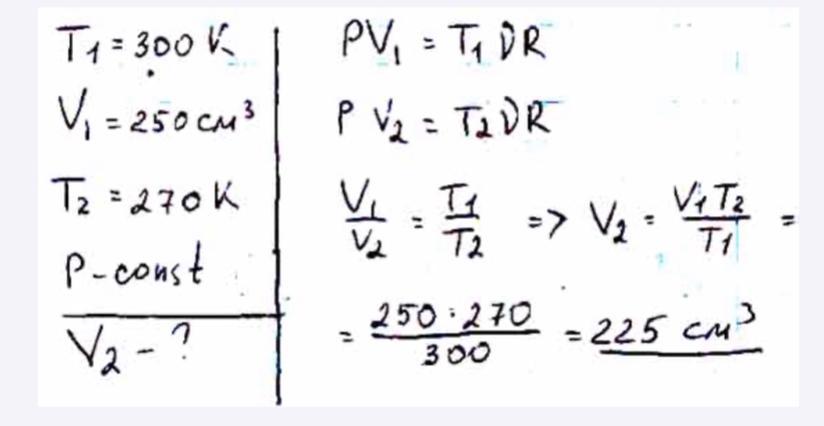 T₁ = 300 K
V₁ = 250 см³
T₂ = 270 K
P - const
V₂ - ?
PV₁ = T₁ νR
P V₂ = T₂ νR
V₁/V₂ = T₁/T₂ => V₂ = V₁T₂/T₁ =
= 250 · 270/300 = 225 см³